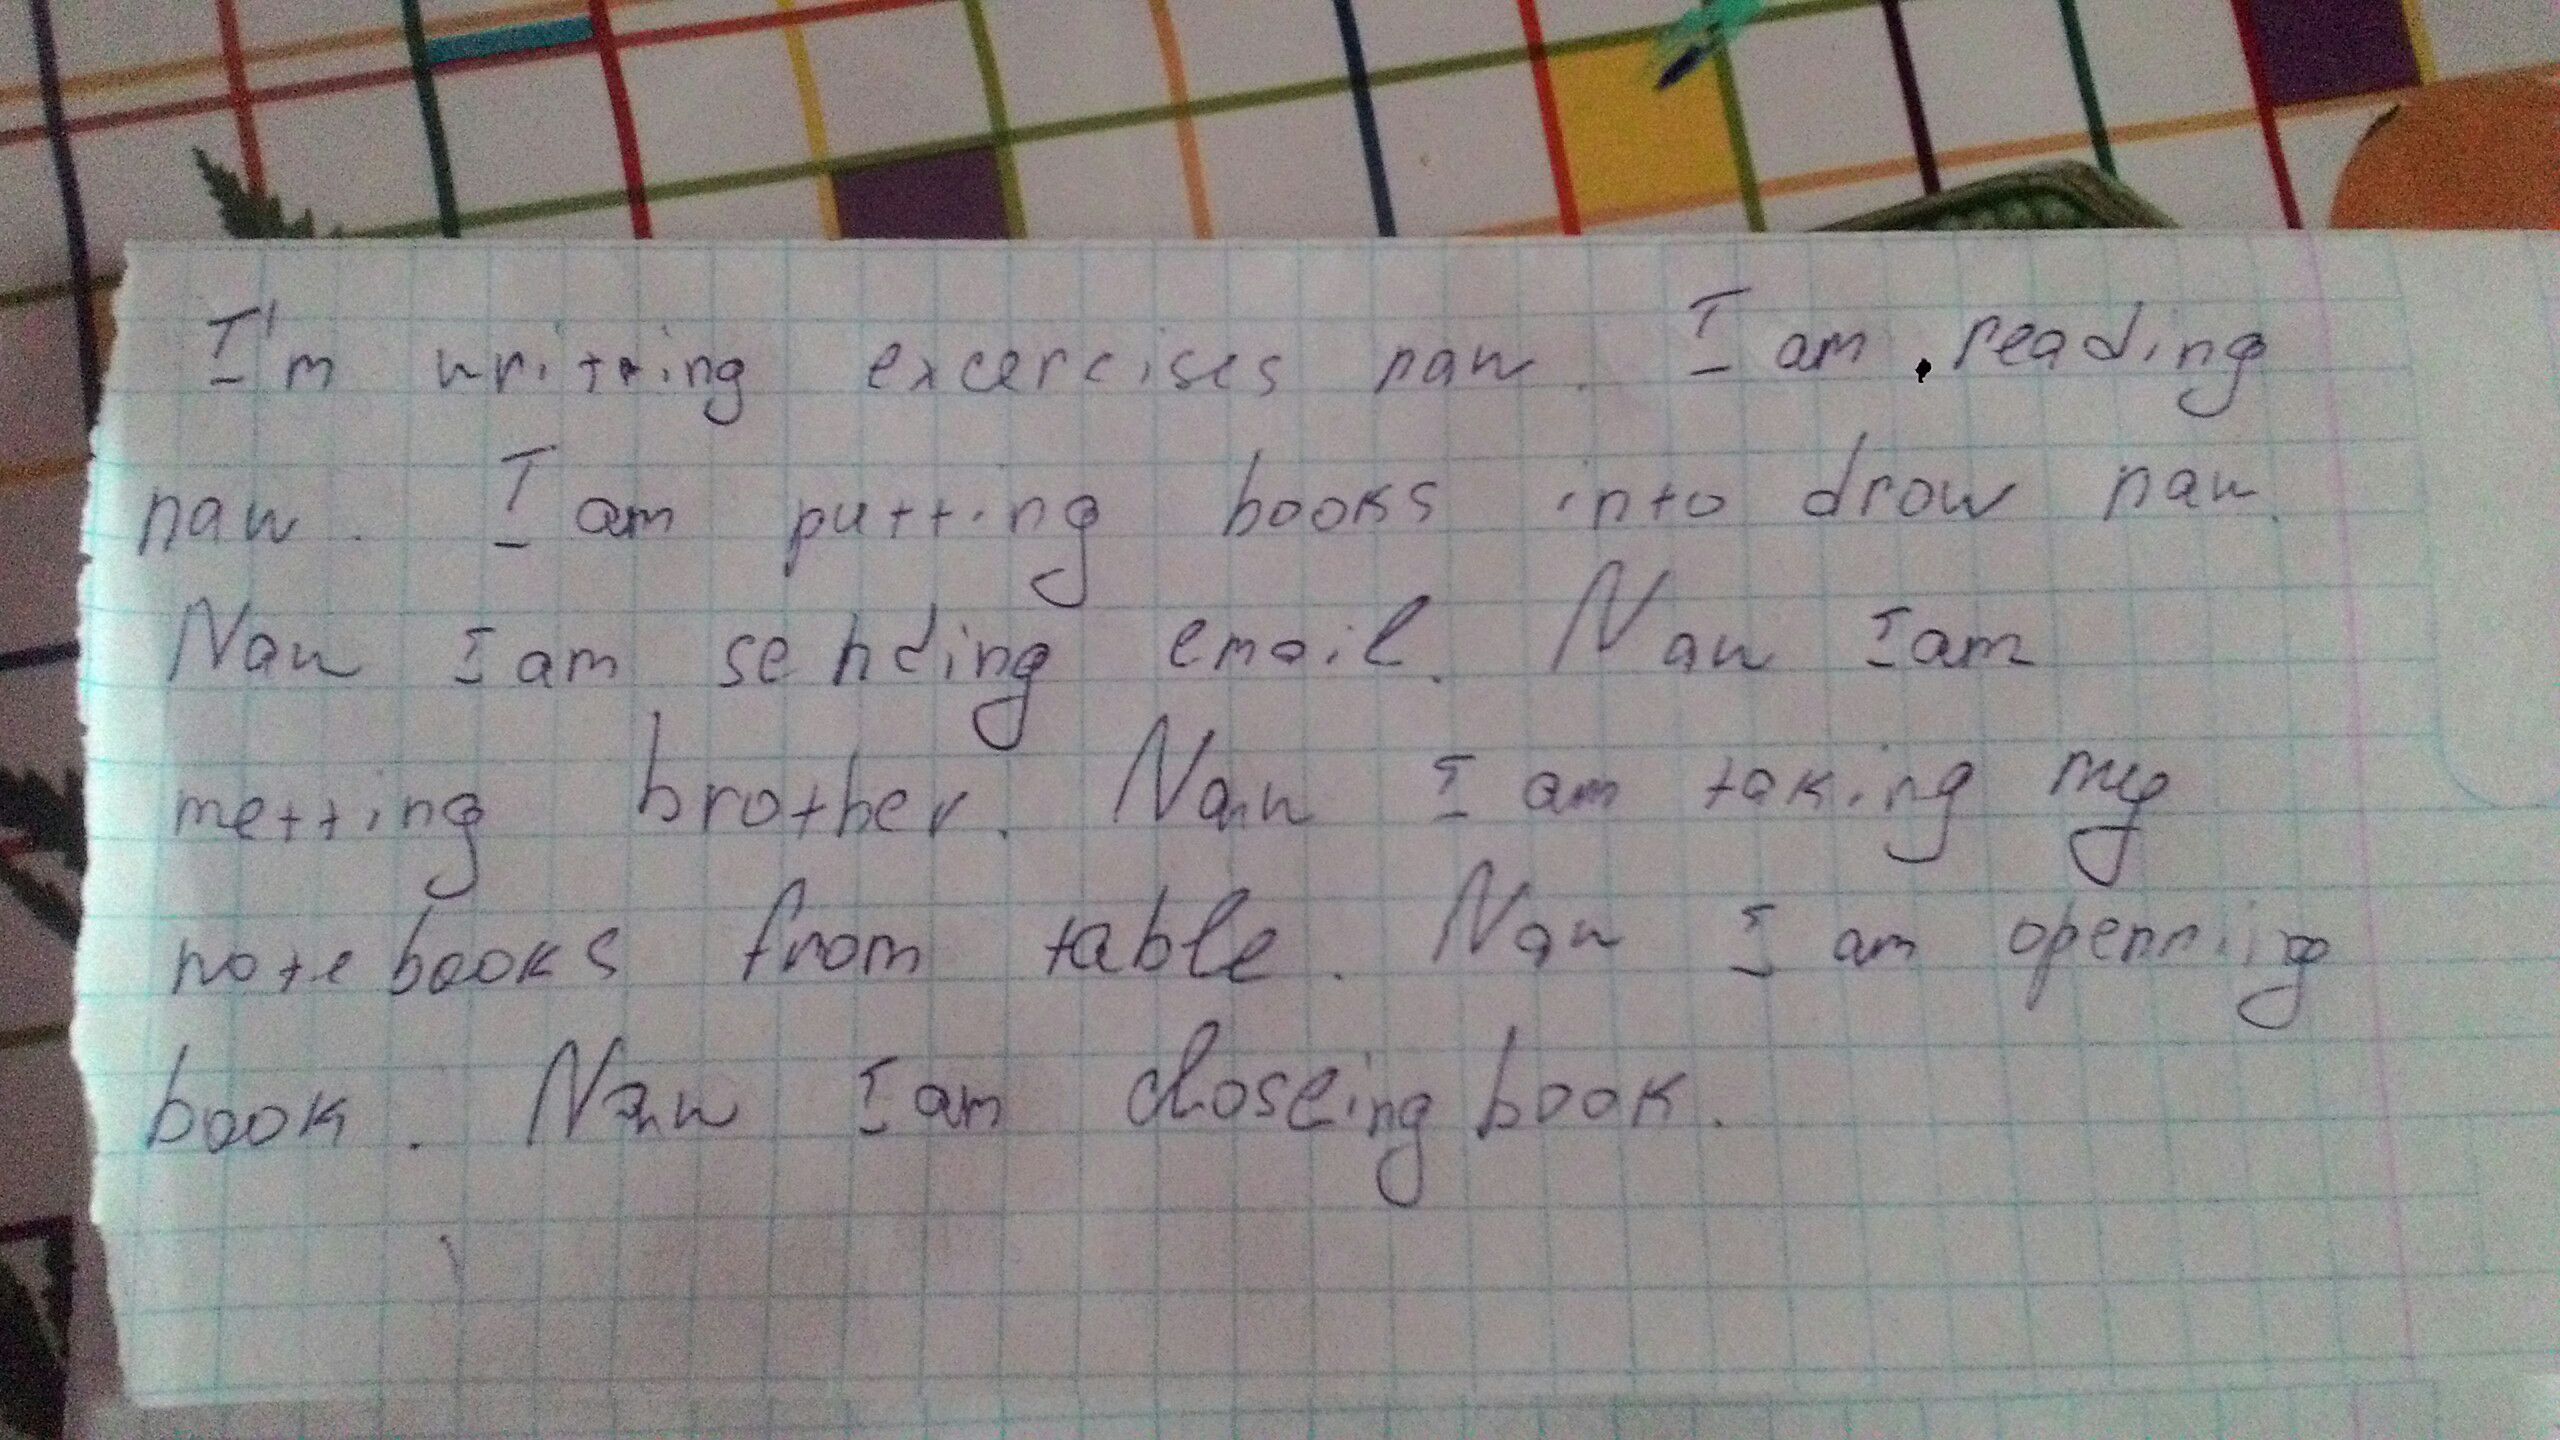 I'm writting excercises naw. I am reading
naw. I am putting books into drow naw.
Naw I am sending email. Naw I am
metting brother. Naw I am taking my
notebooks from table. Naw I am openning
book. Naw I am closeing book.